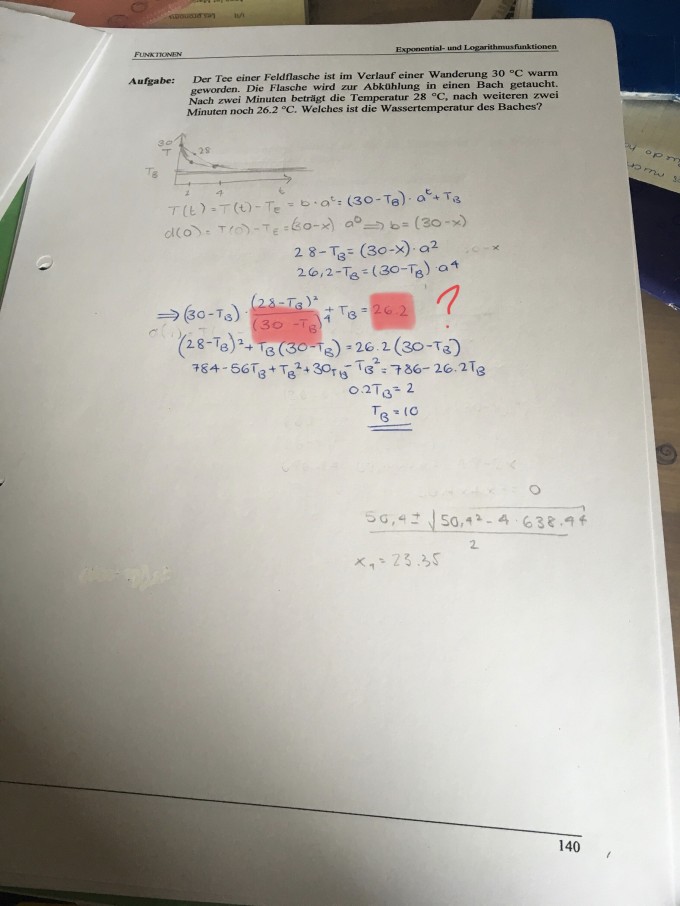 FUNKTIONEN Exponential- und Logarithmusfunktionen
Aufgabe: Der Tee einer Feldflasche ist im Verlauf einer Wanderung 30 °C warm
geworden. Die Flasche wird zur Abkühlung in einen Bach getaucht.
Nach zwei Minuten beträgt die Temperatur 28 °C, nach weiteren zwei
Minuten noch 26.2 °C. Welches ist die Wassertemperatur des Baches?
30
T 28
T_B
2 4 t
T(t) = T(t) - T_E = b · a^t = (30-T_B) · a^t + T_B
d(0) = T(0) - T_E = (30-x) a^0 ⇒ b = (30-x)
28-T_B = (30-x) · a^2
26,2-T_B = (30-T_B) · a^4
⇒ (30-T_B) · (28-T_B)^2 / (30-T_B) + T_B = 26.2 ?
(28-T_B)^2 + T_B(30-T_B) = 26.2(30-T_B)
784-56T_B+T_B^2+30T_B-T_B^2 = 786-26.2T_B
0.2T_B = 2
T_B = 10
0
50,4 ± √50,4^2 - 4 · 638.44
2
x_1 = 23.35
140